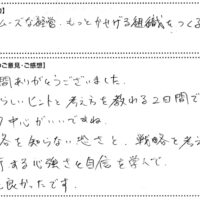 ムーズな経営、もっとかせげる組織をつくる
のご意見・ご感想】
間ありがとうございました。
らしいヒントと考え方を教われる2日間で
ク中心がいいですね。
略を知らない恐さと、戦略を考え
する心強さを自信を学んで
良かったです。